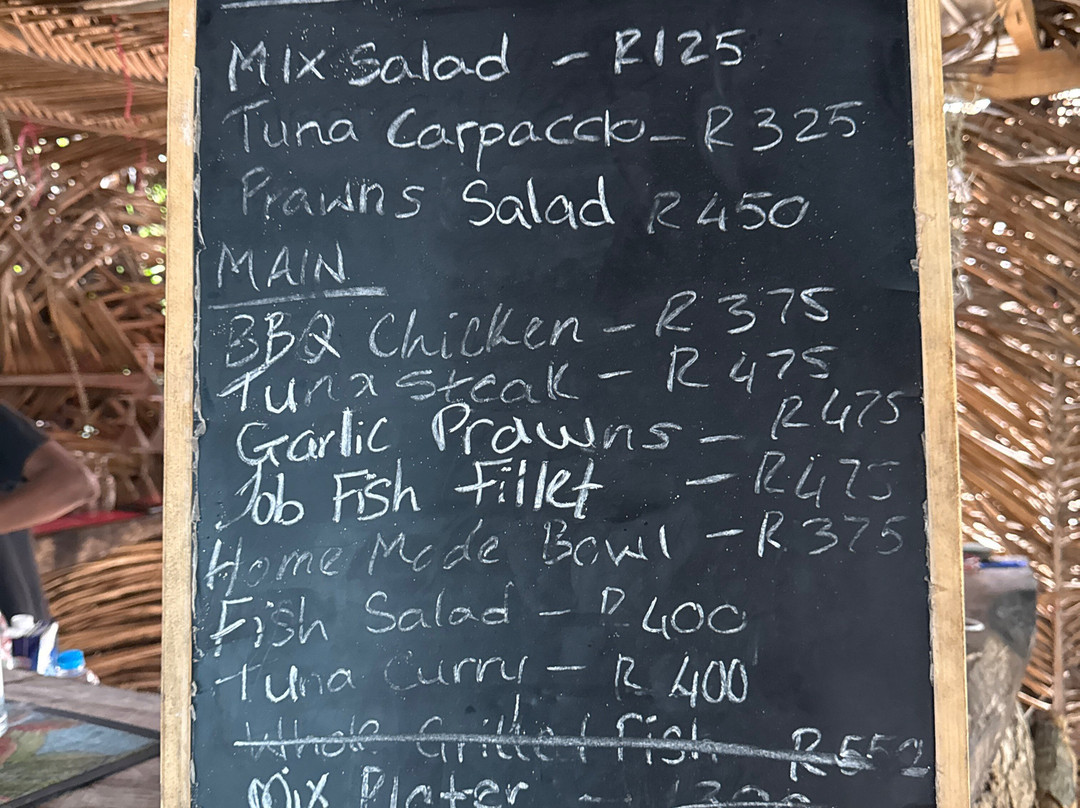 Mix Salad - R125
Tuna Carpaccio - R325
Prawns Salad R450
MAIN
BBQ Chicken - R375
Tuna Steak - R475
Garlic Prawns - R475
Job Fish Fillet - R475
Home Made Bowl - R375
Fish Salad - R400
Tuna Curry - R400
Whole Grilled Fish
Mix Plater -